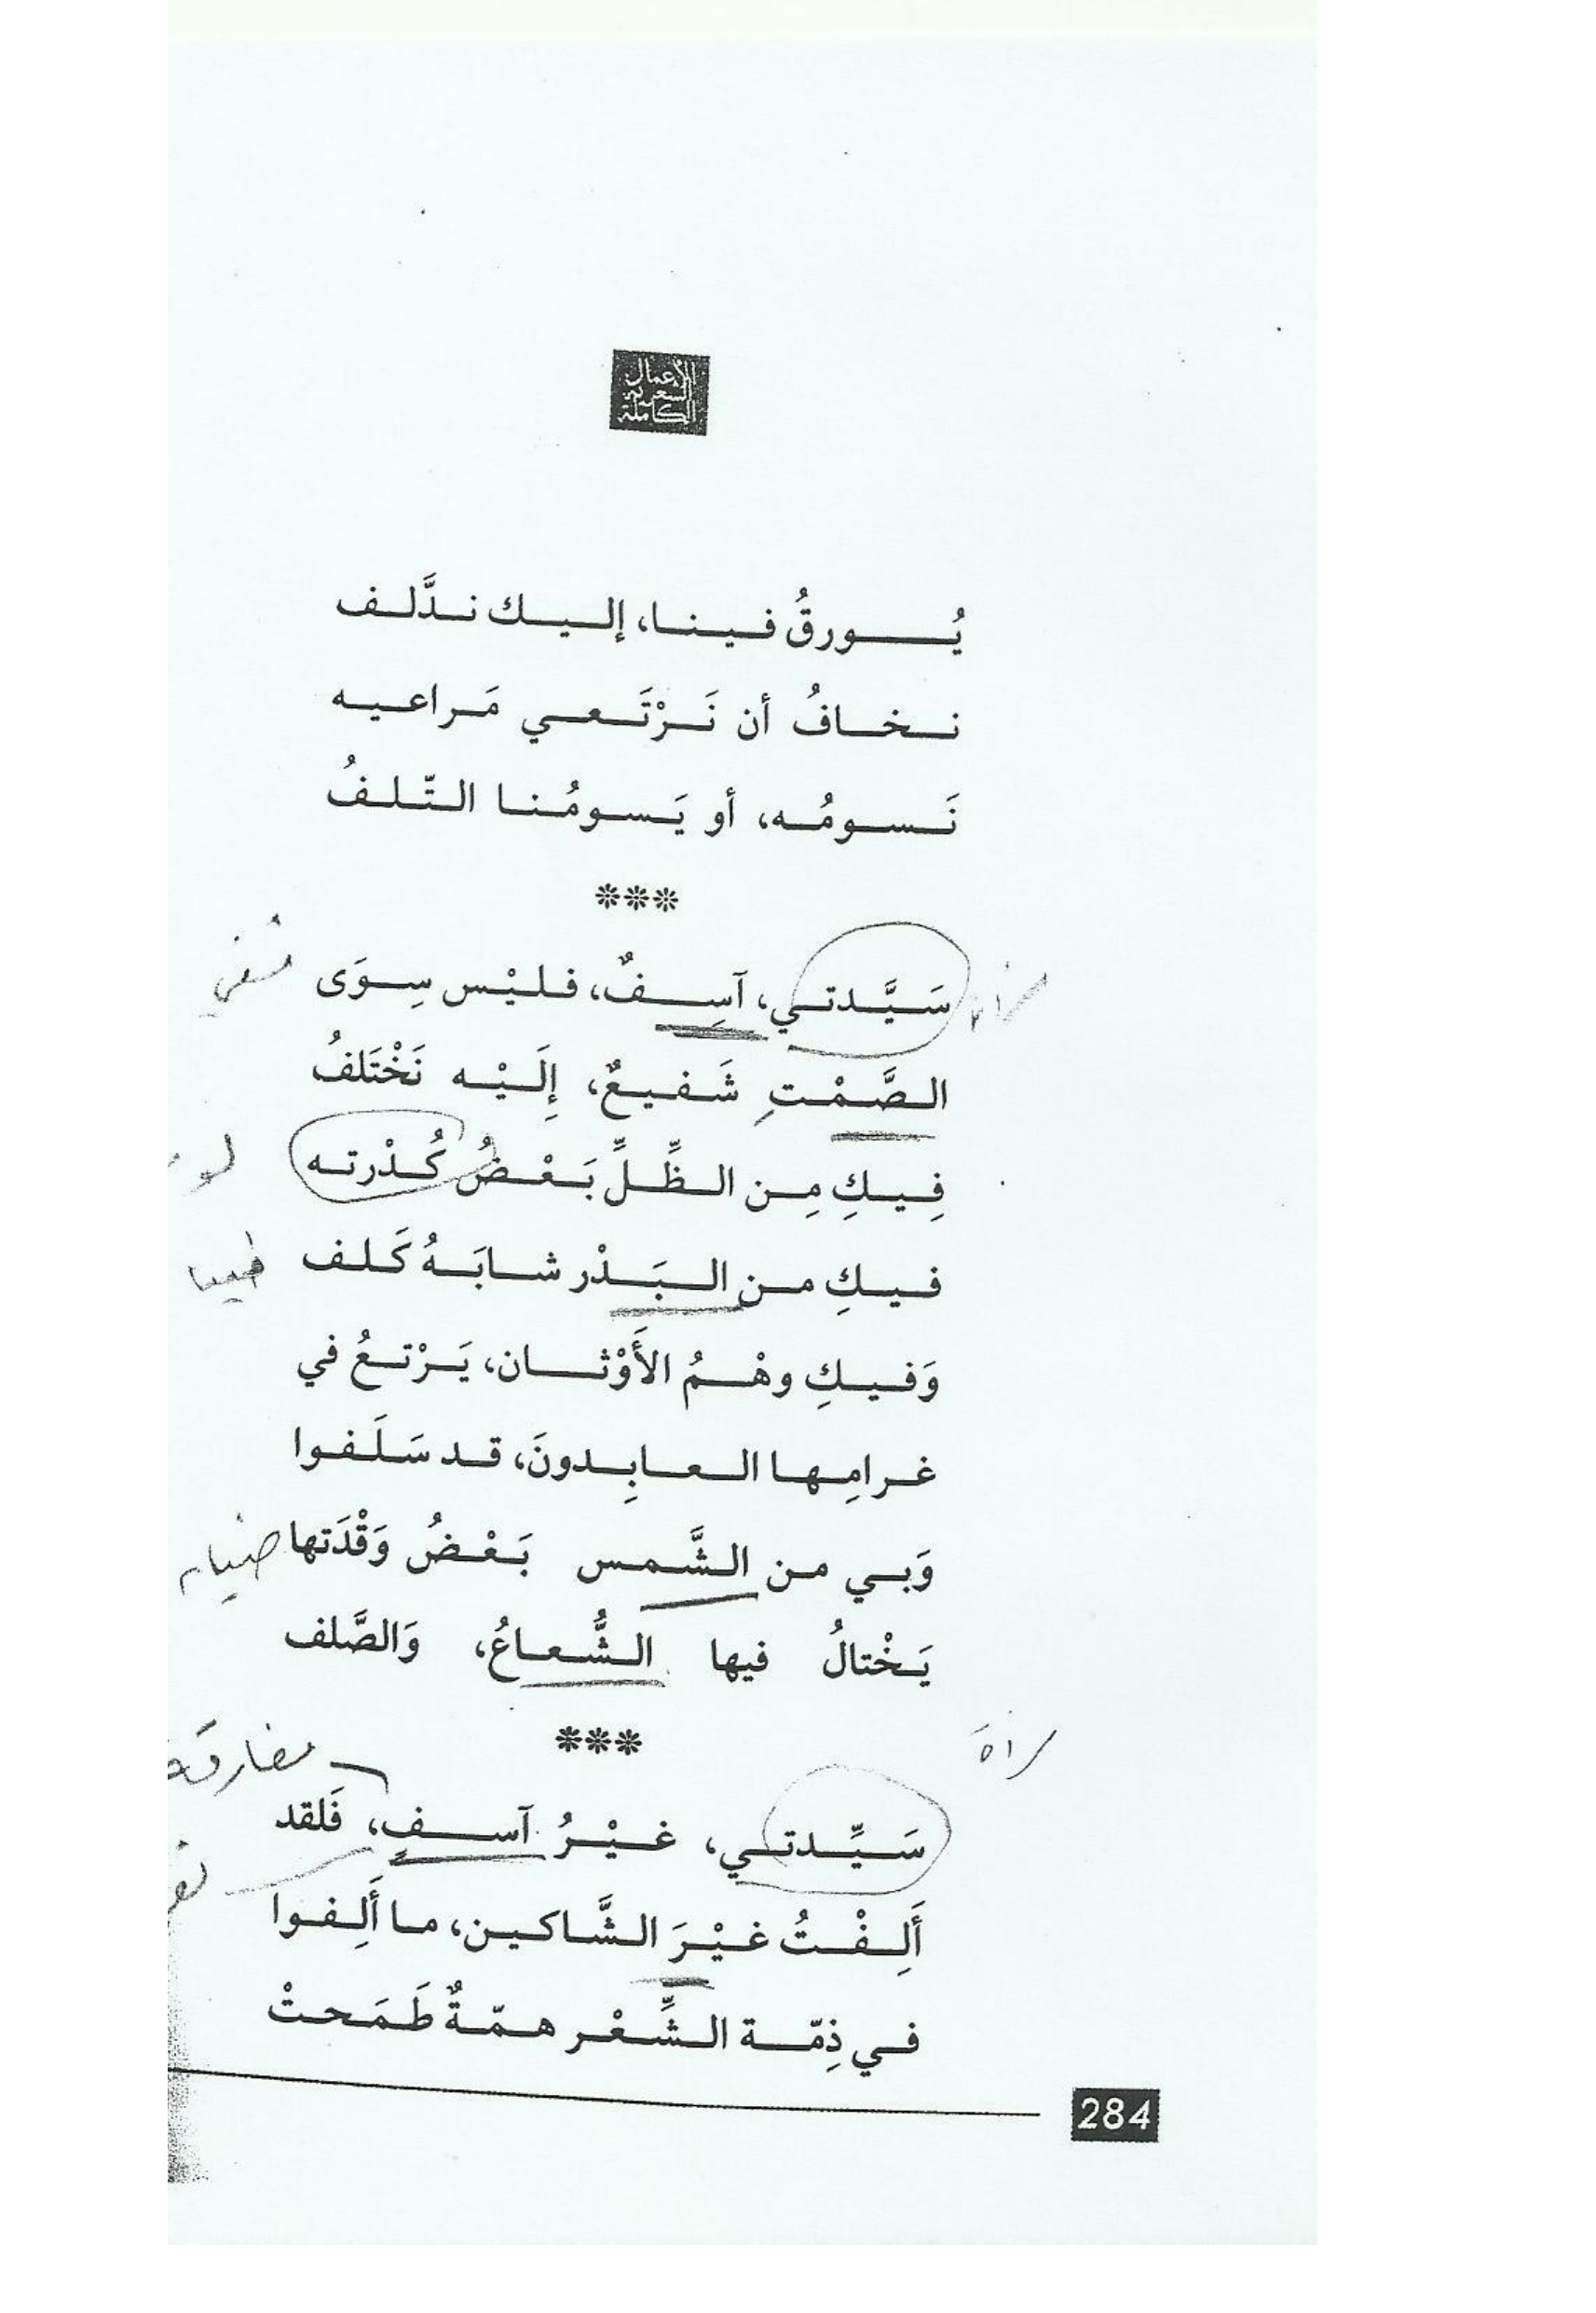 الأعمال
الشعرية
الكاملة
يُـورقُ فـيـنـا، إلـيـك نـدَّلـف
نـخـافُ أن نَـرْتَـعـي مَـراعـيـه
نَـسـومُـه، أو يَـسـومُـنـا التّـلـفُ
***
سَـيَّـدتـي، آسِـفٌ، فـلـيْـس سِـوَى
الـصَّـمْـتِ شَـفـيـعٌ، إِلَـيْـه نَخْتَلفُ
فِـيـكِ مِـن الـظِّـلِّ بَـعْـضُ كُـدْرتـه
فـيـكِ مـن الـبَـدْر شـابَـهُ كَـلـف
وَفـيـكِ وهْـمُ الأَوْثـان، يَـرْتـعُ في
غـرامِـهـا الـعـابِـدونَ، قـد سَـلَـفـوا
وَبـي مـن الشَّـمـس بَـعْـضُ وَقْدَتها ضياء
يَـخْتالُ فيها الـشُّـعـاعُ، وَالصَّلف
***
مفارقة
سَـيِّـدتـي، غـيْـرُ آسـفٍ، فَلقد
أَلِـفْـتُ غـيْـرَ الـشَّـاكـيـن، مـا أَلِـفـوا
فـي ذِمّـة الـشِّـعْـر هـمّـةٌ طَـمَـحـتْ
284